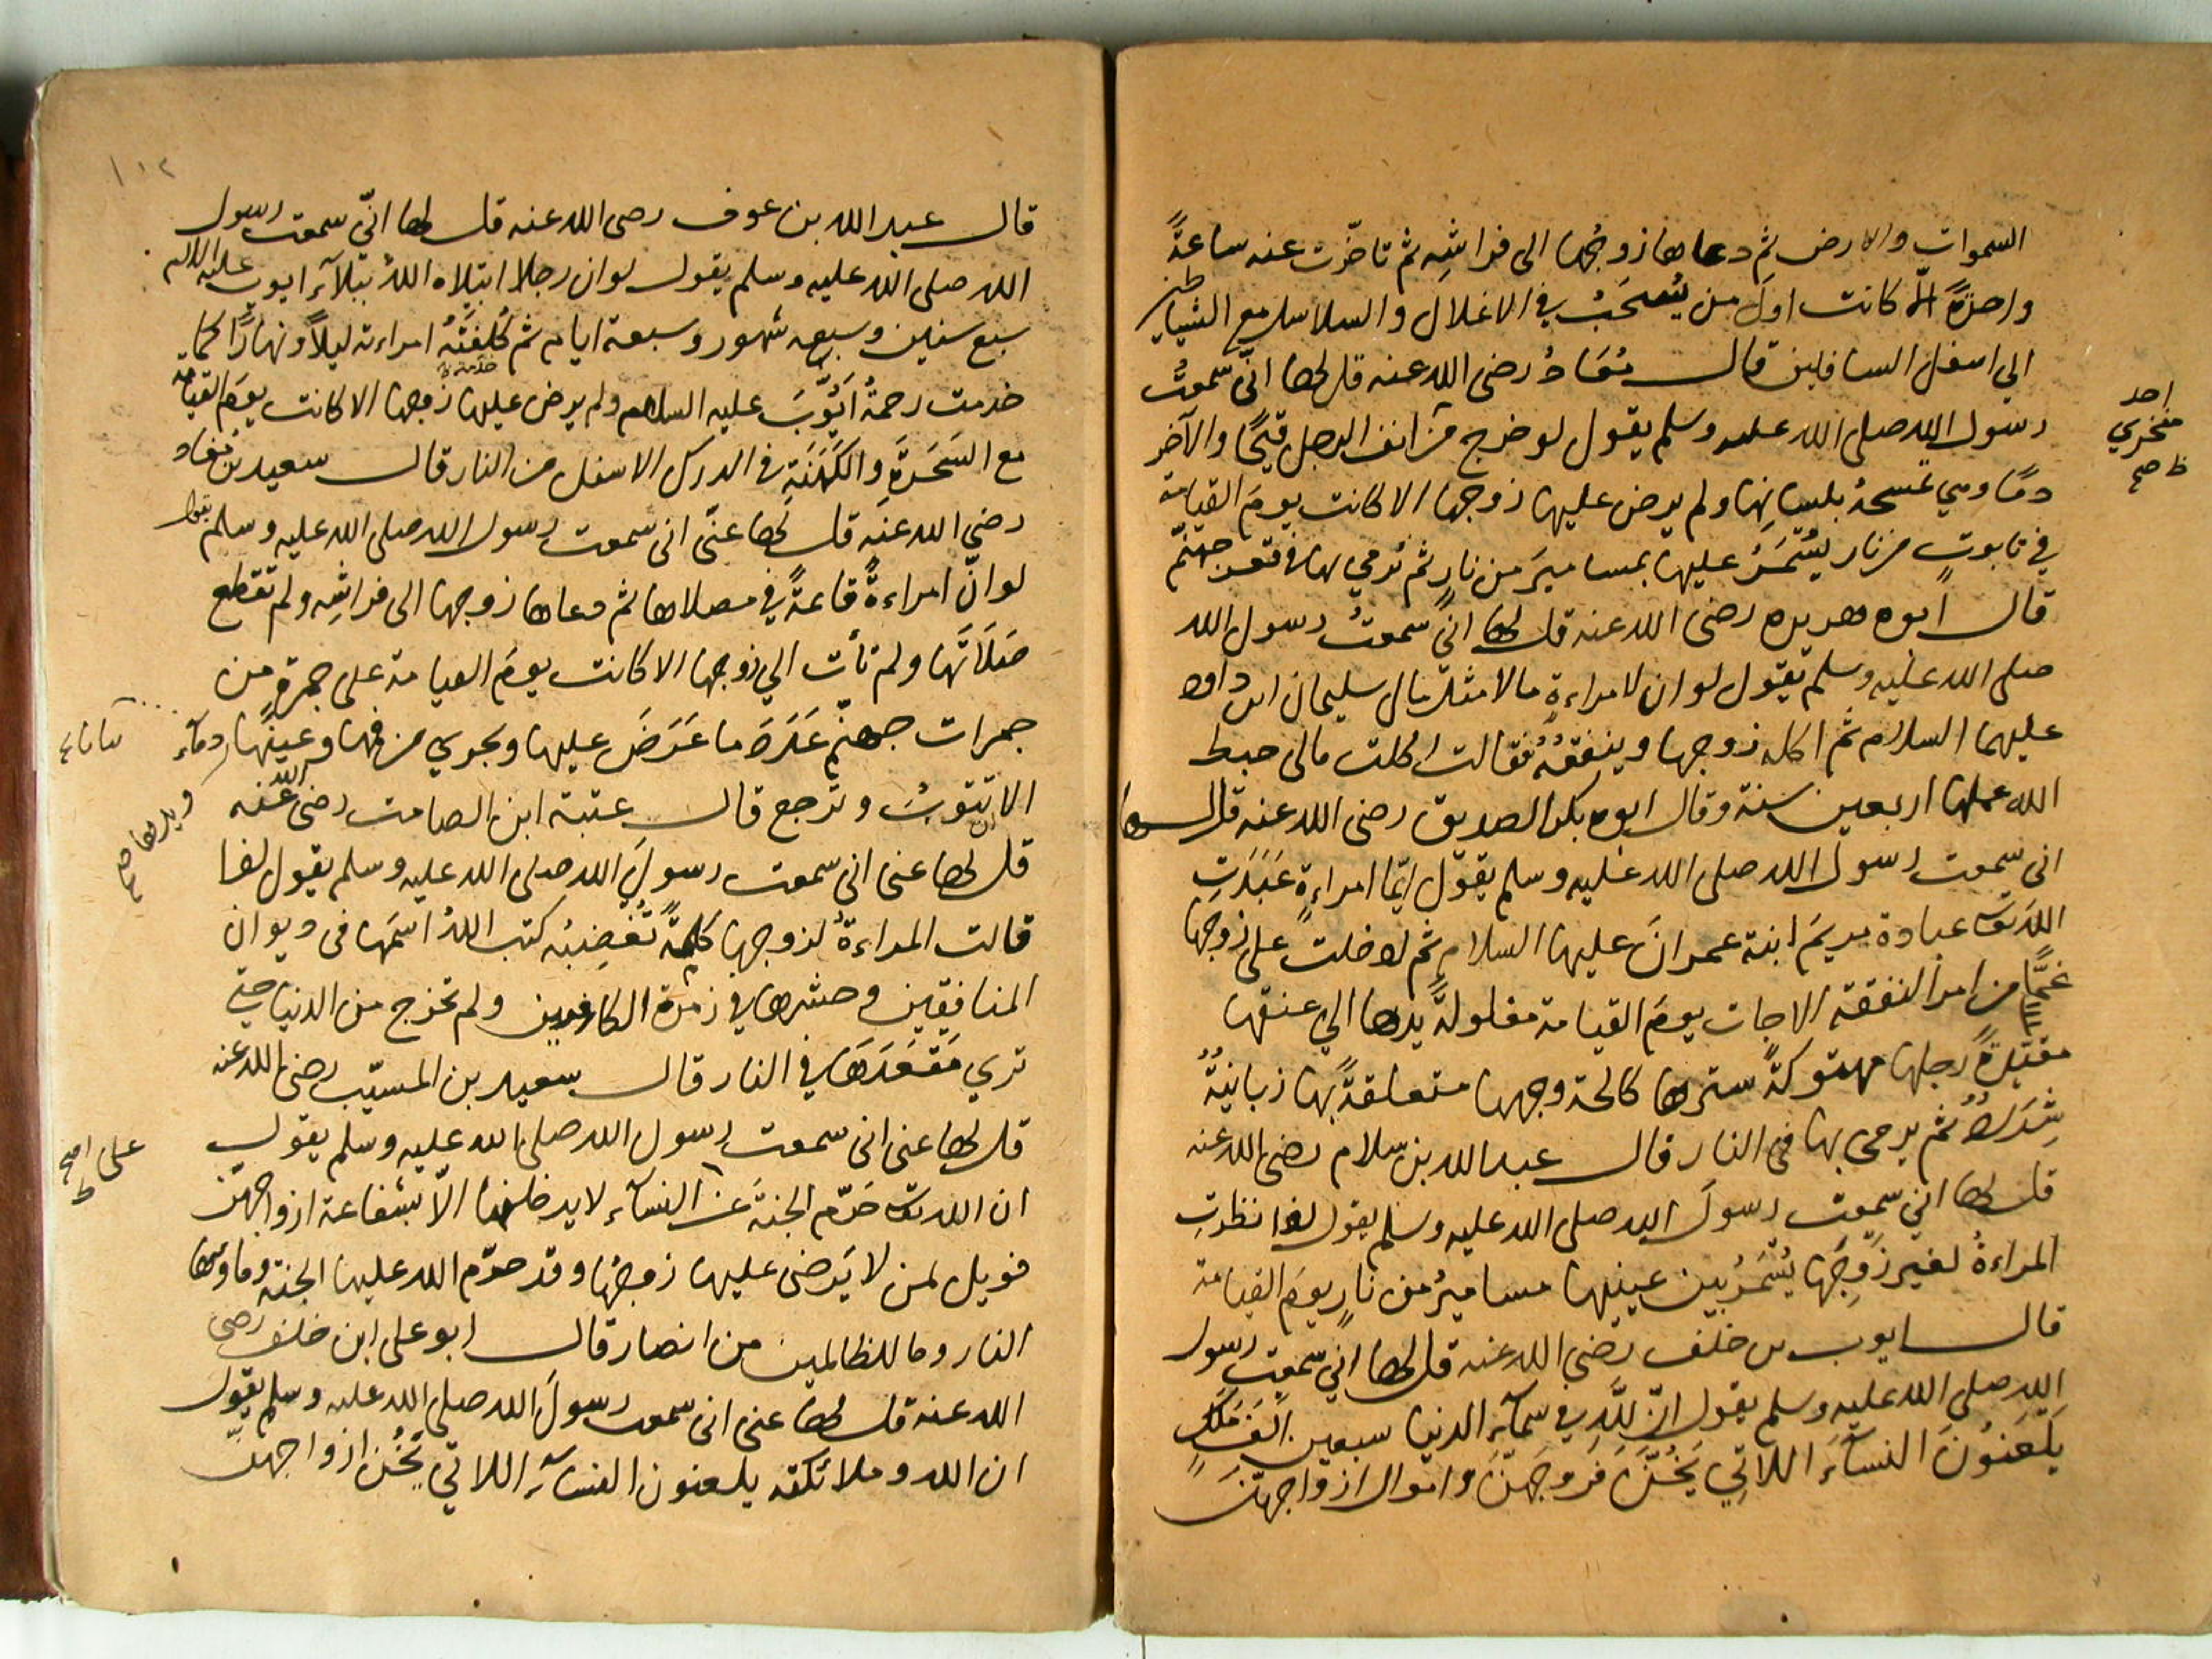 السموات والارض ثم دعاها زوجُها الى فراشِه ثم تاخّرت عنه ساعةً
واحدةً الّا كانت اولَ من يُسحَبُ في الاغلالِ والسلاسل مع الشياطين
الي اسفل السافلين قال مُعَاذُ رضى الله عنه قل لها انّى سمعتُ
رسول الله صلى الله عليه وسلم يقول لو خرج من انف الرجل قيحًا والآخر
احد
منخري
ظ صح
دمًا وهي تمسحهُ بلسانِها ولم يرض عليها زوجها الا كانت يومَ القيامة
في تابوتٍ من نار يُسْمَرُ عليها بمساميرَ من نارٍ ثم تُرمي بها في قعر جهنّم
قال ابوه هريره رضى الله عنه قل لها انّي سمعتُ رسول الله
صلى الله عليه وسلم يقول لو ان لامراءةٍ مالا مثلَ مال سليمان ابن داود
عليهما السلام ثم اكله زوجها وينفقُهُ فقالت اكلت مالى حبط
الله عملها اربعين سنة وقال ابوه بكر الصديق رضى الله عنه قل لها
انى سمعت رسولَ الله صلى الله عليه وسلم يقول ايّما امراءةٍ عَبَدَتِ
اللهَ تعَ عبادة مريمَ ابنة عمرانَ عليها السلام ثم ادخلت على زوجها
غمًّا من امر النفقة الا جات يومَ القيامة مغلولةً يدها الي عنقها
مقيدةً رجلها مهتوكةً سترها كالحة وجهها متعلقةً بها زبانيةُ
شِدَادٌ ثم يرمى بها فى النار قال عبد الله بن سلام رضى الله عنه
قل لها اني سمعت رسولَ الله صلى الله عليه وسلم يقول اذا نظرتِ
المراءةُ لغير زَوجِها يُسْمَرُ بين عينيها مساميرُ من نارٍ يومَ القيامة
قال ايوب بن خلف رضي الله عنه قل لها اني سمعت رسول
الله صلى الله عليه وسلم يقول انّ للّهِ في سمآءِ الدنيا سبعين الفَ مَلَكٍ
يَلعَنُونَ النسآءَ اللاتِي يَخُنَّ فروجَهنّ واموال ازواجهنّ
١٠٢
قال عبد الله بن عوف رضى الله عنه قل لها انّي سمعت رسول
الله صلى الله عليه وسلم يقول لو ان رجلا ابتلاه اللهُ ببلآءِ ايوب عليه السلام
سبع سنين وسبعه شهور وسبعة ايام ثم كُلِفَتْهُ امراءته ليلاً ونهارًا كما
خدمت رحمةُ اَيُّوبَ عليه السلام ولم يرض عليها زوجها الا كانت يومَ القيامة
مع السَحَرَةِ والكَهَنَةِ في الدرك الاسفل من النار قال سعيد بن معاذ
رضي الله عنه قل لها عنّى انى سمعت رسول الله صلى الله عليه وسلم يقول
لو انّ امراءةً قاعدةً في مصلاها ثم دعاها زوجها الى فراشِه ولم تقطع
صَلَاتَها ولم تأت الي زوجها الا كانت يومَ القيامة على جمرةٍ من
جمرات جهنّم عَدَدَ ما عَرَضَ عليها ويجري من فمها وعينها دمآء
ويدها صح
الا ان تتوبُ وترجع قال عتبة ابن الصامت رضى الله عنه
قل لها عنى انى سمعت رسولَ الله صلى الله عليه وسلم يقول اذا
قالت المراءةُ لزوجها كلمةً تُغضِبُه كتب اللهُ اسمَها فى ديوان
المنافقين وحشرها في زمرة الكافرين ولم تخرج من الدنيا حتى
تري مَقعَدَهَا في النار قال سعيد بن المسيّب رضى الله عنه
قل لها عنى انى سمعت رسول الله صلى الله عليه وسلم يقول
على صح
ظ
ان الله تعَ حَرّم الجنةَ عن النسآءِ لا يدخلنها الّا بشفاعة ازواجهنّ
فويل لمن لا يَرضى عليها زوجُها وقد حرّم الله عليها الجنة وماويها
النار وما للظالمين من انصار قال ابو على ابن خلف رضى
الله عنه قل لها عنى انى سمعت رسولَ الله صلى الله عليه وسلم يقول
ان الله وملائكته يلعنون النسآء اللاتي يَخُنّ ازواجهنّ